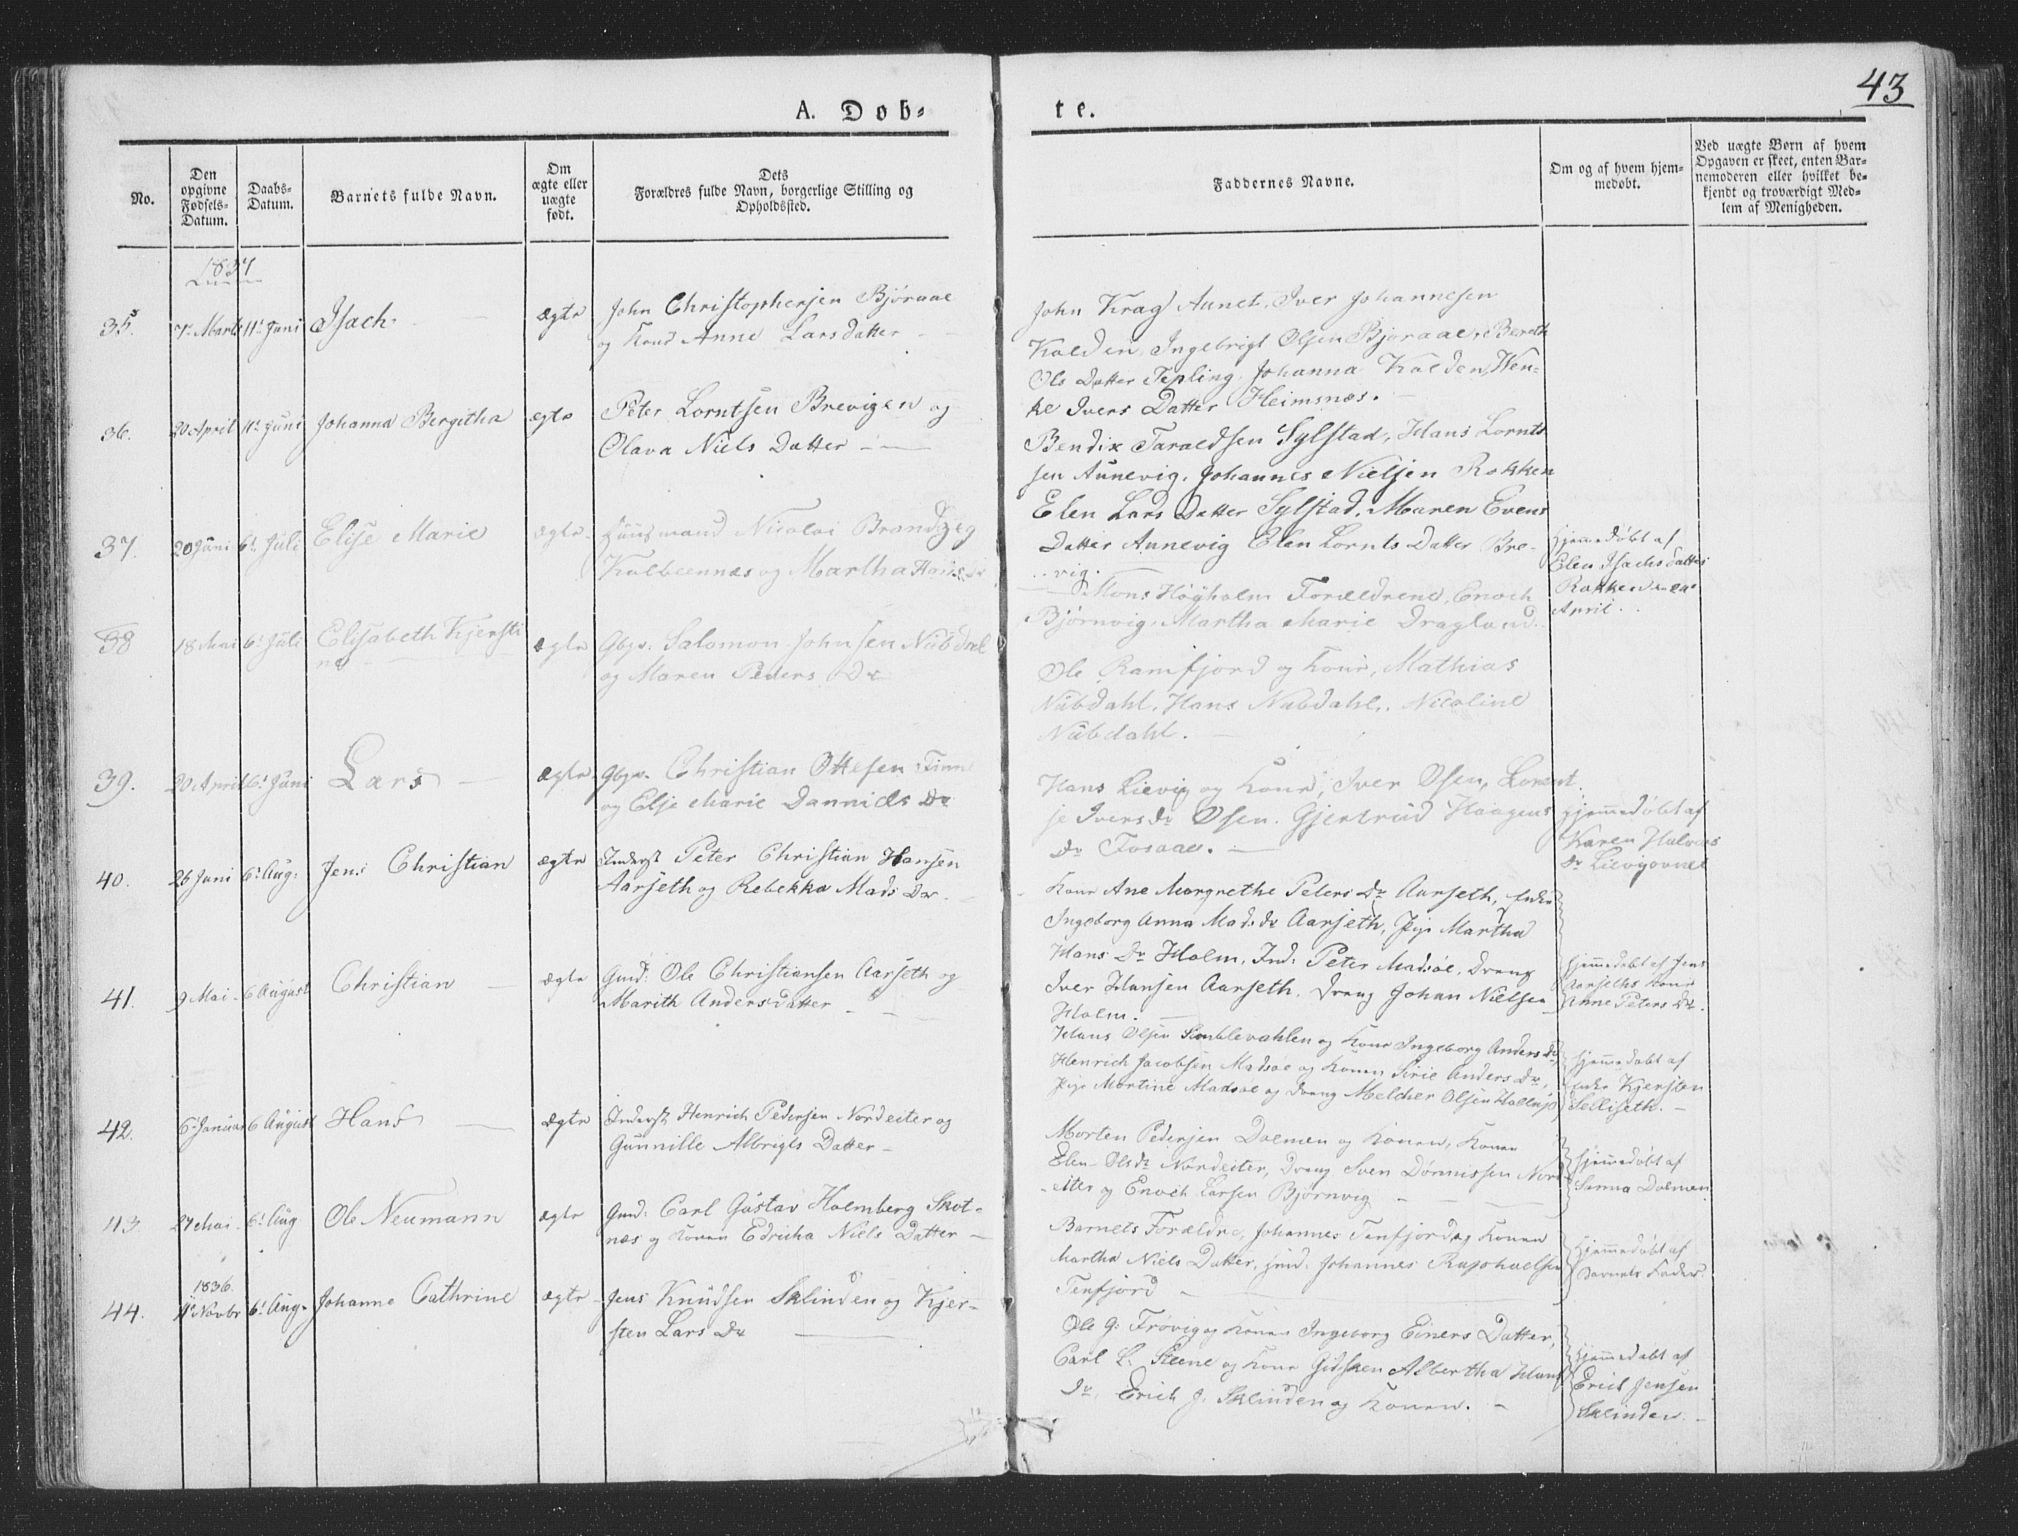 43
A. Døb-
te.
No.
Den opgivne Fødsels-Datum.
Daabs-Datum.
Barnets fulde Navn.
Om ægte eller uægte født.
Dets Forældres fulde Navn, borgerlige Stilling og Opholdssted.
Faddernes Navne.
Om og af hvem hjem-medøbt.
Ved uægte Børn af hvem Opgaven er skeet, enten Bar-nemoderen eller hvilket be-kjendt og troværdigt Med-lem af Menigheden.
1837
35. 7de Marts 11te Juni Isach ægte
John Christophersen Bjøraae
og Kone Anne Larsdatter
John Krag Aunet, Iver Johannesen
Kolden, Ingebrigt Olsen Bjøraae, Bereth
Ols Datter Tepling, Johanna Kolden, Wen-
ke Ivers Datter Heimsnæs.
36. 20 April 11te Juni Johanna Bergitha ægte
Peter Lorntsen Brevigen og
Olava Niels Datter
Bendix Taraldsen Sylstad, Hans Lornt-
sen Aunevig, Johannes Nielsen Rokken
Elen Lars Datter Sylstad, Maren Evens
Datter Aunevig Elen Lornts Datter Bre-
vig.
Hjemmedøbt af
Elen Isachsdatter
Rokken
April
37. 20 Juni 6te Juli Elise Marie ægte
Huusmand Nicolai Brandzeg
Kalbeennæs og Martha Hansdr
Mons Høyholm Forældrene, Enoch
Bjørnvig, Martha Marie Dragland
38 18 Mai 6te Juli Elisabeth Kjersti-
na ægte
Gbgr. Salomon Johnsen Nübdal
og Maren Peders Dr
Ole Ramfjord og Kone, Mathias
Nübdahl, Hans Nübdahl, Nicoline
Nübdahl.
39. 20 April 6te Juni Lars ægte
Gbgr. Christian Ottesen Finn
og Else Marie Danniels Dr
Hans Lievig og Kone, Iver Osen, Lorent-
se Iversdr Osen. Gjertrud Haagens
Dr Fosaae.
Hjemmedøbt af
Karen Halvors
Dr Lievigovnet
40. 26 Juni 6te Aug: Jens Christian ægte
Inderst Peter Christian Hansen
Aarseth og Rebekka Mads Dr
Kone Ane Margrethe Peters Dr Aarseth, Enke
Ingeborg Anna Madsdr Aarseth, Pige Martha
Hans Dr Holm, Ind: Peter Madsøe, Dreng
Iver Hansen Aarseth, Dreng Johan Nielsen
Holm.
Hjemmedøbt af Jens
Aarseths Kone
Anne Peters Dr.
41. 9 Mai 6 August Christian ægte
Gmd: Ole Christiansen Aarseth og
Marith Andersdatter
Hans Olsen Simblevahlen og Kone Ingeborg Anders Dr,
Henrich Jacobsen Madsøe og Konen Sirie Anders Dr,
Pige Martine Madsøe og Dreng Melcher Olsen
Hjemmedøbt af
Enke Kjersten
Selliseth.
42. 6te Januar 6 August Hans ægte
Inderst Henrich Pedersen Nordeiter og
Gunnille Albrigts Datter
Morten Pedersen Dolmen og Konen, Konen
Elen Olsdr Nordeiter, Dreng Sven Dønnissen Nord-
eiter og Enoch Larsen Bjørnvig
Hjemmedøbt af
Sinna Dolmen
43. 27 Mai 6te Aug Ole Neumann ægte
Gmd: Carl Gustav Holmberg Skot-
næs og Konen Edricha Niels Datter
Barnets Forældre, Johannes Tenfjord og Konen
Martha Niels Datter, Gmd: Johannes Raphaelsen
Tenfjord
Hjemmedøbt af
Barnets Fader
1836.
44. 11te Novbr 6te Aug. Johanne Cathrine ægte
Jens Knudsen Sklinden og Kjer-
sten Lars Dr
Ole G: Frøvig og Konen Ingeborg Einers Datter,
Carl L: Steene og Kone Gidsken Albertha Hans
Dr, Erich J. Sklinden og Konen.
Hjemmedøbt af
Erich Jensen
Sklinden.